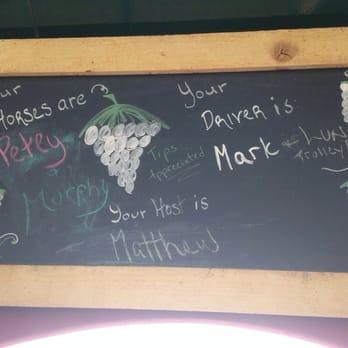 Your
Horses are
Petey
+
Murphy
Tips
Appreciated
Your
Driver is
Mark +
Your Host is
Matthew
Trolley